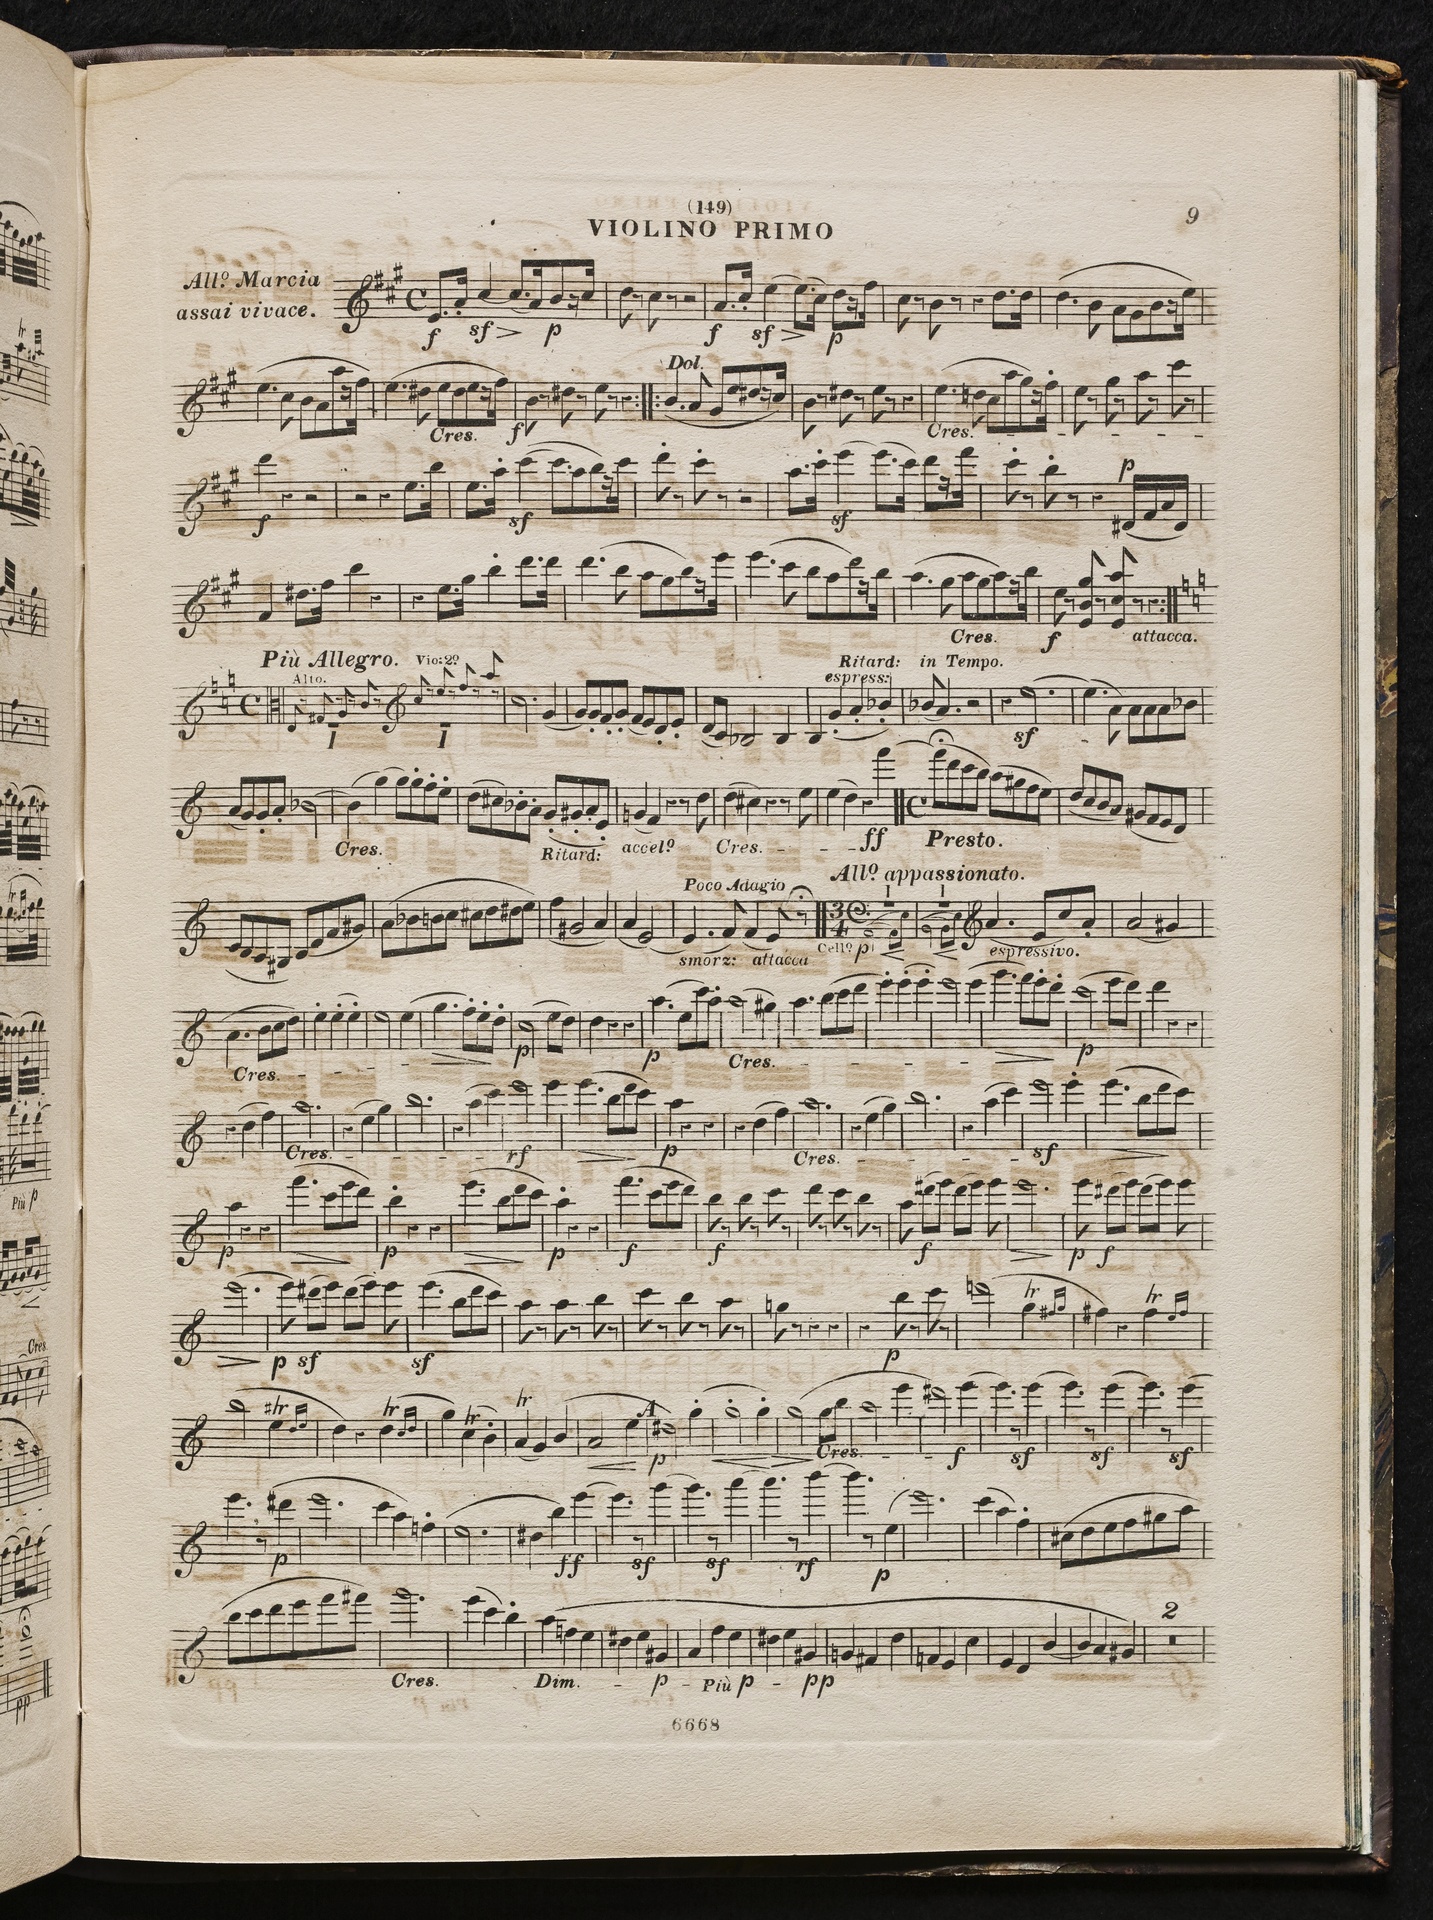 (149)
9
VIOLINO PRIMO
All.º Marcia
assai vivace.
f sf p f sf p
Dol.
Cres. f Cres.
p
f sf sf
Cres. f attacca.
Più Allegro. Vio: 2º Ritard: in Tempo.
Alto. espress:
1 1 sf
Cres. Ritard: accelº Cres. ff Presto.
Allº. appassionato.
Poco Adagio 1 1
3
4
smorz: attacca Cellº p espressivo.
Cres. p p Cres. p
Cres. rf p Cres. sf
p p p f f f p f
tr tr
p sf sf p
tr tr tr tr
p Cres. f sf sf sf
p ff sf sf rf p
2
Cres. Dim. p Più p pp
6668
Più p
Cres
pp